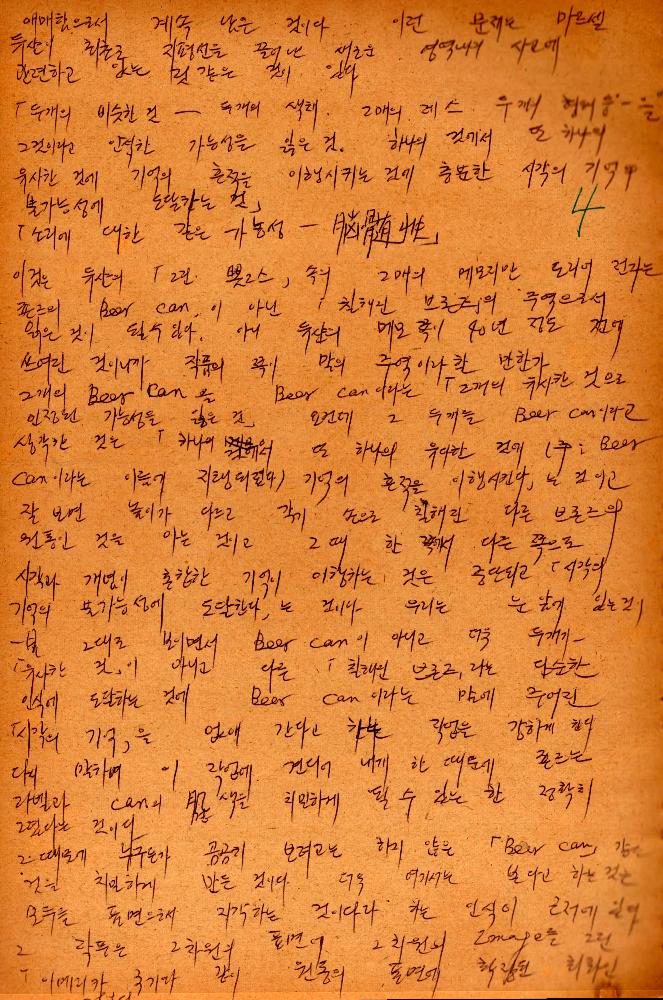 애매함으로서 계속 남은 것이다 이런 문제는 마르셀
듀샹이 최초로 지평선을 끌어낸 새로운 영역내의 사고에
관련하고 있는 것 같은 것이 있다
「두개의 비슷한 것 — 두개의 색채. 2매의 레스. 두개의 형의 중 "-을"
그것이라고 인식한 가능성을 잃은 것. 하나의 것에서 또 하나의
유사한 것에 기억의 흔적을 이행시키는 것에 충분한 시각의 기억의
불가능성에 도달하는 것」
4
「소리에 대한 같은 가능성 — 脳髄性」
이것은 듀샹의 「그린 뽁스」 속의 2매의 메모리만 도리어 전자는
죤즈의 Beer can」이 아닌 「칠해진 브론즈」의 주역으로서
읽은 것이 될 수 있다. 아니 듀샹의 메모 쪽이 40년 정도 전에
쓰여진 것이니까 작품의 쪽이 말의 주역이라 한 만한가
2개의 Beer Can을 Beer can이라는 「2개의 유사한 것으로
인정된 가능성을 잃은 것」 요컨데 그 두개를 Beer can이라고
생각한 것은 「하나의 것에서 또 하나의 유사한 것에 (주: Beer
can이라는 이름에 지탱되었다) 기억의 흔적을 이행시킨다」는 것이고
잘 보면 높이가 다르고 각기 손으로 칠해진 다른 브론즈의
원통인 것을 아는 것이고 그 때 한 쪽에서 다른 쪽으로
시각과 개념이 혼합한 기억이 이행하는 것은 중단되고 「시각의
기억의 불가능성에 도달한다」는 것이다 우리는 눈 앞에 있는 것이
그대로 보이면서 Beer can이 아니고 더욱 두개가
「유사한 것」이 아니고 다른 「칠해진 브론즈」라는 단순한
인식에 도달하는 것에 Beer can이라는 말에 주어진
「시각의 기억」을 없애 간다고 하는 작업을 강하게 한다
다시 말하며 이 작업에 견디어 내게 한 때문에 죤즈는
라벨과 can의 색을 치밀하게 될 수 있는 한 정확히
그렸다는 것이다
그 때문에 누구든가 곰곰히 보려고는 하지 않은 「Beer can」 같은
것을 치밀하게 만든 것이다. 더욱 여기서는 본다고 하는 것은
모두를 표면으로서 지각하는 것이다라 하는 인식이 근저에 있다
그 작품은 2차원의 표면에 2차원의 Image를 그린
「아메리카 국기와 같이 원통의 표면에 확장된 회화인